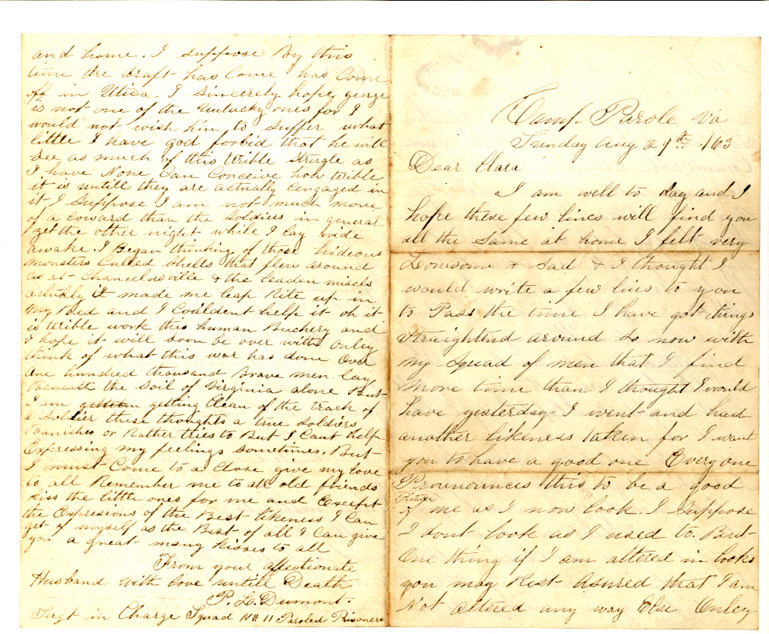 Camp Parole Va
Sunday Aug 29th /63
Dear Clara
I am well to day and I
hope these few lines will find you
all the Same at home I felt very
Lonesome & Sad & I thought I
would write a few lines to you
to Pass the time I have got things
Straightend around So now with
my Squad of men that I find
more time than I thought I would
have yesterday I went and had
another likeness taken for I want
you to have a good one Everyone
Pronounces this to be a good
of me as I now look. I Suppose
I dont look as I used to. But
One thing if I am altered in looks
you may Rest Assured that I am
Not altered any way Else Onley
and home. I suppose By this
time the draft has Come has Come
off in Utica. I Sincerely hope george
is not one of the unlucky ones for I
would not wish him to Suffer what
little I have god forbid that he will
See as much of this terible Strugle as
I have None Can Conceive how terible
it is untill they are actualy Engaged in
it I Suppose I am not much more
of a Coward than the Soldies in general
yet the other night while I lay wide
awake. I Began thinking of those hideous
monsters Called Shells that flew around
us at Chancelorsville & the leaden misels
actualy it made me leap Rite up in
my Bed and I Couldent help it oh it
is terible work this human Buchery and
I hope it will soon be over with Onley
think of what this war has done Over
One hundred thousand Brave men lay
Beneath the Soil of Virginia alone But
I am getting Clean of the track of
a Soldier these thoughts a true Soldiers
Banishes or Rather tries to But I Cant help
Expressing my feelings Sometimes. But
I must Come to a Close give my love
to all Remember me to all old friends
Kiss the little ones for me and Except
the Expresions of the Best likeness I Can
get of myself as the Best of all I Can give
you a great many kisses to all
From your affectionate
Husband with love untill Death
P. L. Dumont.
Sergt in Charge Squad No 11 Paroled Prisoners